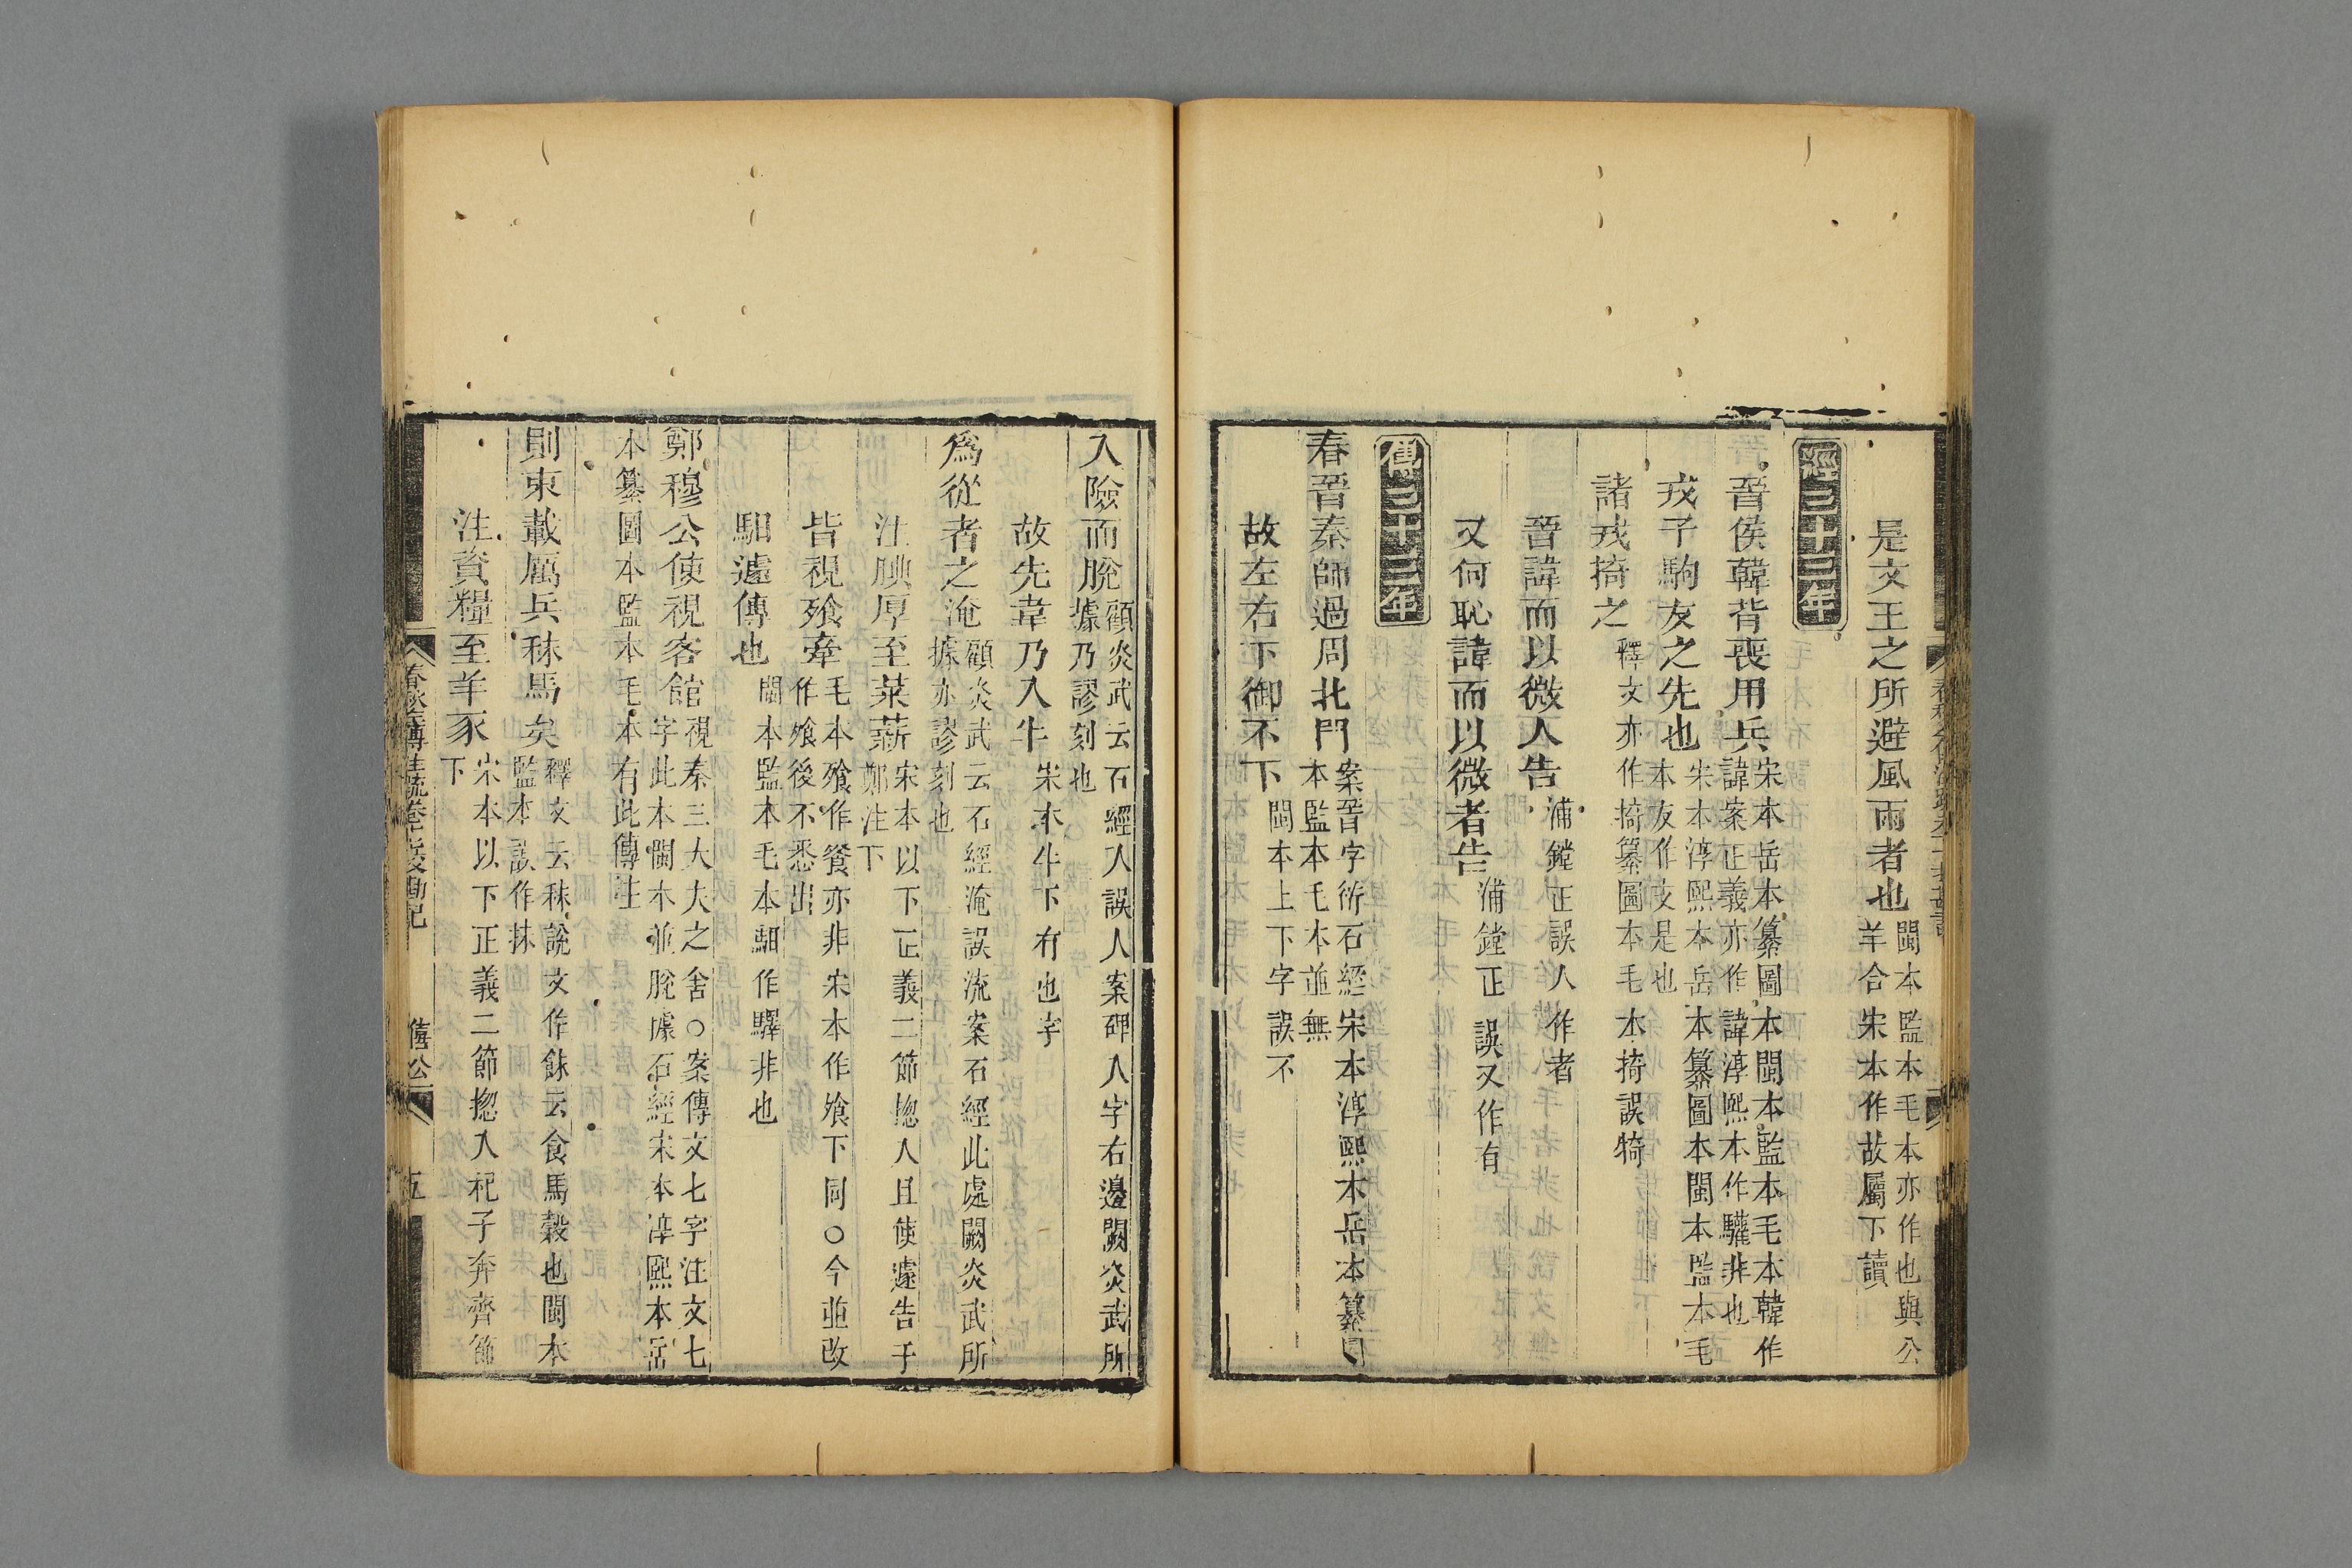 是文王之所避風雨者也閩本監本毛本亦作也與公羊合宋本作故屬下讀
經三十三年
晉侯韓背喪用兵宋本岳本纂圖本閩本監本毛本韓作諱案正義亦作諱淳熙本作驩非也
戎子駒友之先也宋本淳熙本岳本纂圖本閩本監本毛本友作支是也
諸戎掎之釋文亦作掎纂圖本毛本掎誤犄
晉諱而以微人告浦鏜正誤人作者
又何恥諱而以微者告浦鏜正誤又作有
傳三十三年
春晉秦師過周北門案晉字衍石經宋本淳熙本岳本纂圖本監本毛本並無
故左右下御不下閩本上下字誤不
入險而脫顧炎武云石經入誤人案碑入字右邊闕炎武所據乃謬刻也
故先韋乃入牛宋本牛下有也字
為從者之淹顧炎武云石經淹誤流案石經此處闕炎武所據亦謬刻也
注腆厚至菜薪宋本以下正義二節揔入且使遽告于鄭注下
皆視飱牽毛本飱作餐亦非宋本作飧下同○今並改作飧後不悉出
馹遽傳也閩本監本毛本馹作驛非也
鄭穆公使視客館視秦三大夫之舍○案傳文七字注文七字此本閩本並脫據石經宋本淳熙本岳
本纂圖本監本毛本有此傳注
則束載厲兵秣馬矣釋文云秣說文作䬴云食馬穀也閩本監本誤作抹
注資糧至羊豕宋本以下正義二節揔入杞子奔齊節下
春秋左傳注疏卷十七校勘記
僖公
五